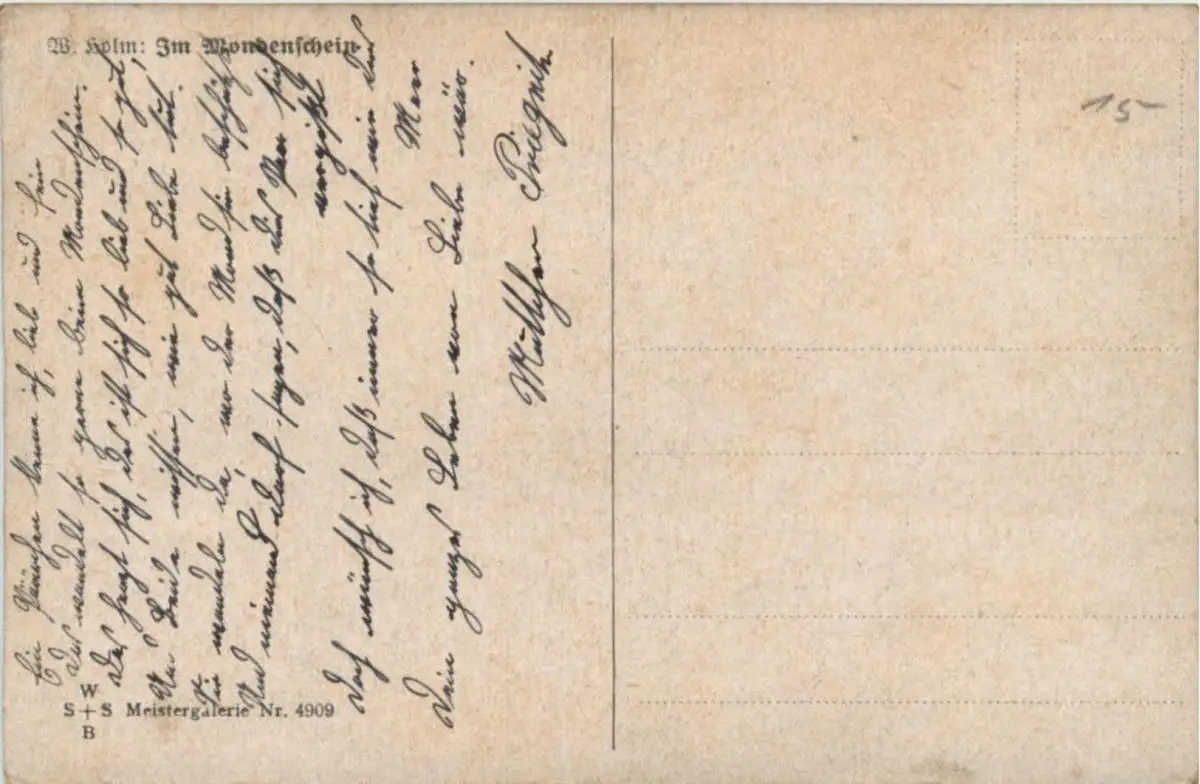 W. Holm: Im Mondenschein
Ein Pärchen kenne ich, lieb und fein
Das wandelt so gern beim Mondenschein.
Das herzt sich, das ist sich so lieb und so gut,
Beide wissen, wie gut Liebe tut.
Sie wandeln da, wo der Mond sie
Und niemand darf sagen, daß das Paar sich
vergißt
Doch wünsch ich, daß immer so tief wie das
Meer
Dein ganzes Leben von Liebe wär.
Prignitz
W
S+S Meistergalerie Nr. 4909
B
15-